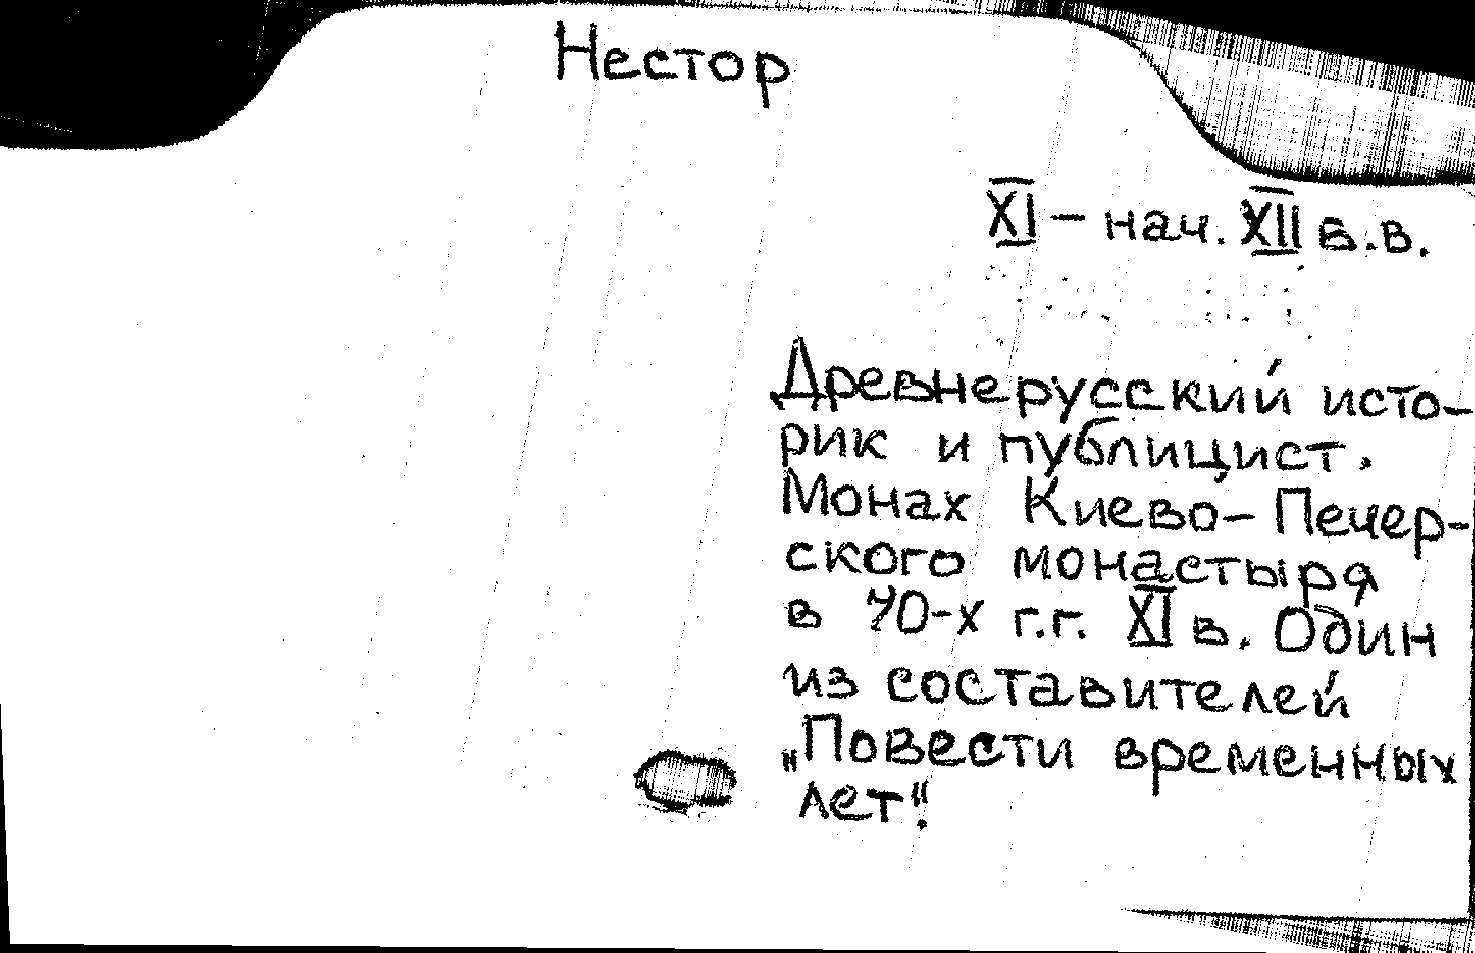 Нестор
XI - нач. XII в.в.
Древнерусский исто-
рик и публицист.
Монах Киево-Печер-
ского монастыря
в 70-х г.г. XI в. Один
из составителей
„Повести временных
лет".